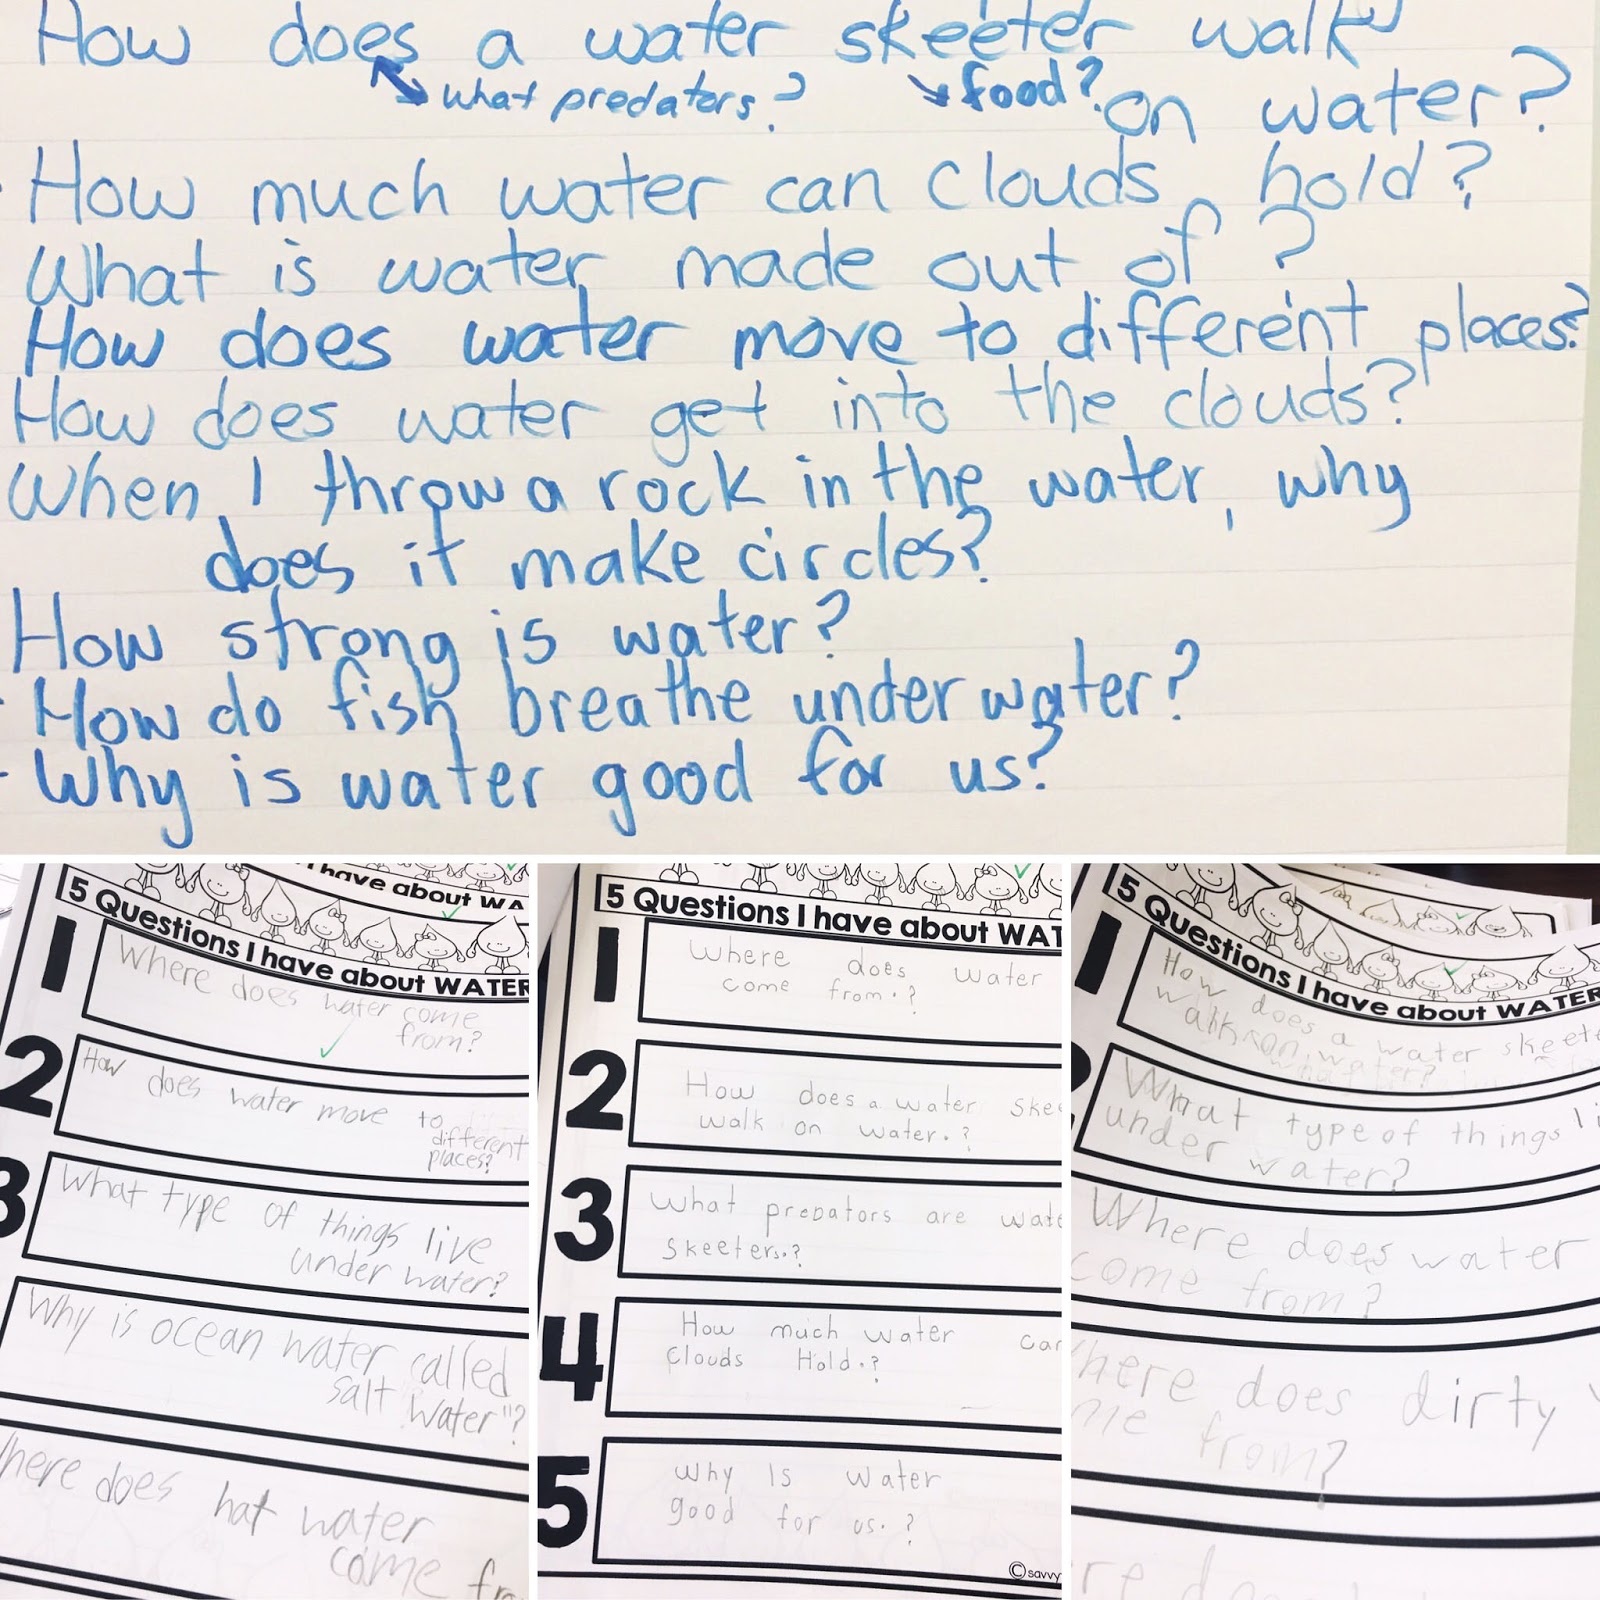 How does a water skeeter walk
what predators? food? on water?
How much water can clouds hold?
What is water made out of?
How does water move to different places?
How does water get into the clouds?
When I throw a rock in the water, why
does it make circles?
How strong is water?
How do fish breathe under water?
Why is water good for us?
I have about WA
5 Questions I have about WATER
1
Where does water come
from?
2
How does water move to
different
places?
3
What type of things live
under water?
Why is ocean water called
salt water"?
here does hot water
come fr
5 Questions I have about WAT
1
Where does water
come from.?
2
How does a water skee
walk on water.?
3
What predators are wate
skeeters.?
4
How much water can
clouds Hold.?
5
Why Is water
good for us.?
©savvy
5 Questions I have about WATER
1
How does a water skeete
walk on water?
What type of things li
under water?
Where does water
come from?
here does dirty
me from?